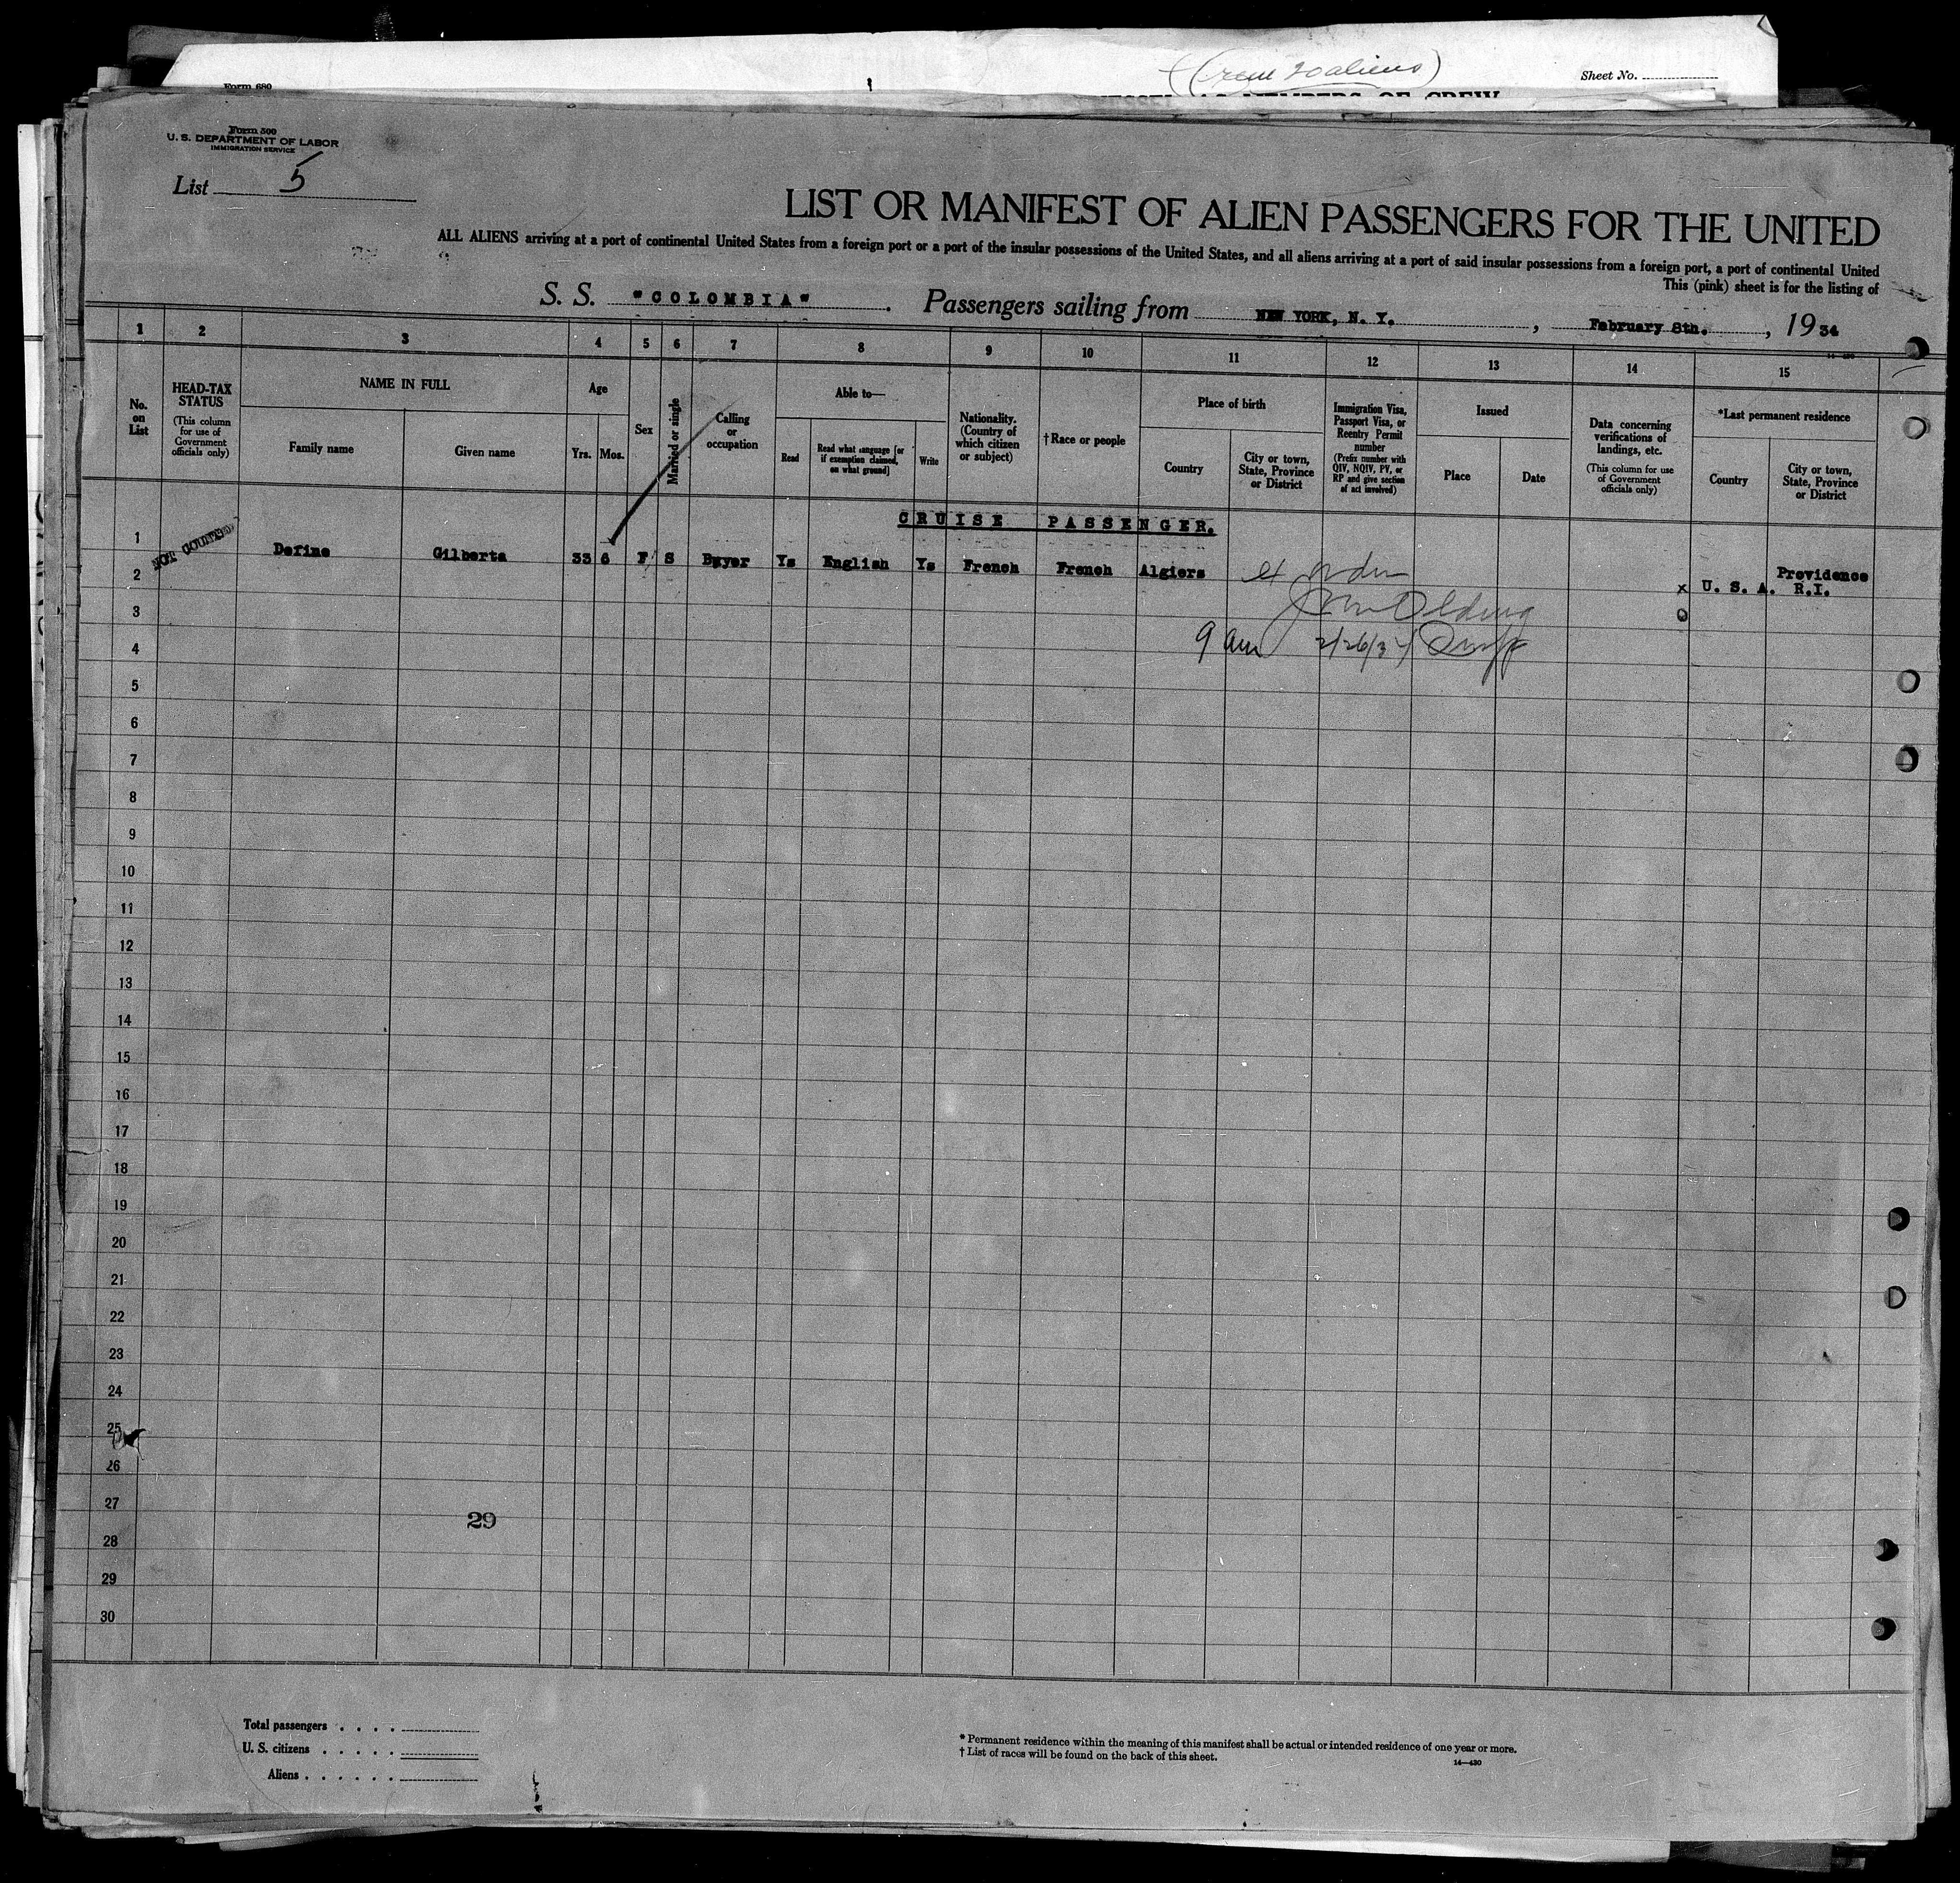 (Crew 20 aliens)
Sheet No.
Form 680
Form 500
U. S. DEPARTMENT OF LABOR
IMMIGRATION SERVICE
List 5
LIST OR MANIFEST OF ALIEN PASSENGERS FOR THE UNITED
ALL ALIENS arriving at a port of continental United States from a foreign port or a port of the insular possessions of the United States, and all aliens arriving at a port of said insular possessions from a foreign port, a port of continental United
This (pink) sheet is for the listing of
S. S. "COLOMBIA". Passengers sailing from NEW YORK, N. Y., February 8th., 1934
1 2 3 4 5 6 7 8 9 10 11 12 13 14 15
14-430
No. on List
HEAD-TAX STATUS
(This column for use of Government officials only)
NAME IN FULL
Family name
Given name
Age
Yrs. Mos.
Sex
Married or single
Calling or occupation
Able to—
Read
Read what language [or if exemption claimed, on what ground]
Write
Nationality. (Country of which citizen or subject)
†Race or people
Place of birth
Country
City or town, State, Province or District
Immigration Visa, Passport Visa, or Reentry Permit number
(Prefix number with QIV, NQIV, PV, or RP and give section of act involved)
Issued
Place
Date
Data concerning verifications of landings, etc.
(This column for use of Government officials only)
*Last permanent residence
Country
City or town, State, Province or District
CRUISE PASSENGER.
1
NOT COUNTED
Define Gilberta 33 6 F S Buyer Ys English Ys French French Algiers x U. S. A. Providence R.I.
2
3
4
9 am 2/26/34
5
6
7
8
9
10
11
12
13
14
15
16
17
18
19
20
21
22
23
24
25
26
27
29
28
29
30
Total passengers
U. S. citizens
Aliens
* Permanent residence within the meaning of this manifest shall be actual or intended residence of one year or more.
† List of races will be found on the back of this sheet.
14—430